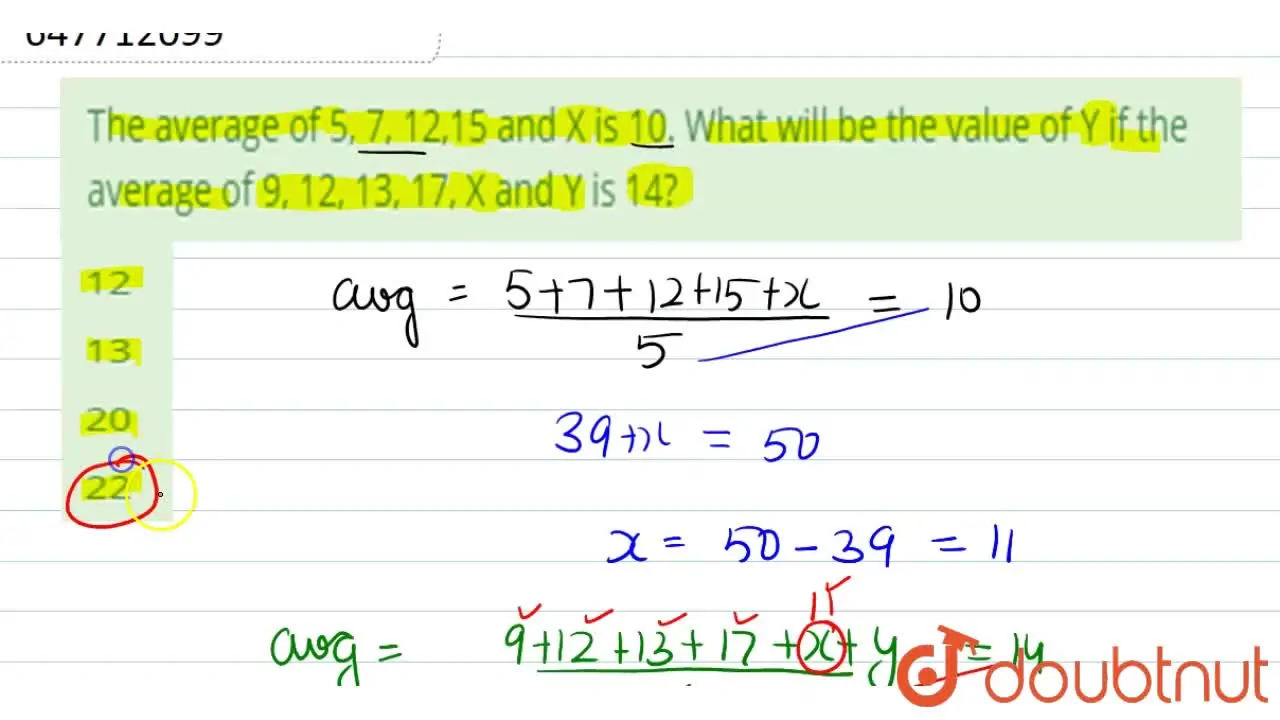 The average of 5, 7, 12,15 and X is 10. What will be the value of Y if the
average of 9, 12, 13, 17, X and Y is 14?
12
13
20
22
avg = 5+7+12+15+x = 10
5
39+x = 50
x = 50 - 39 = 11
11
avg = 9+12+13+17+x+y = 14
doubtnut